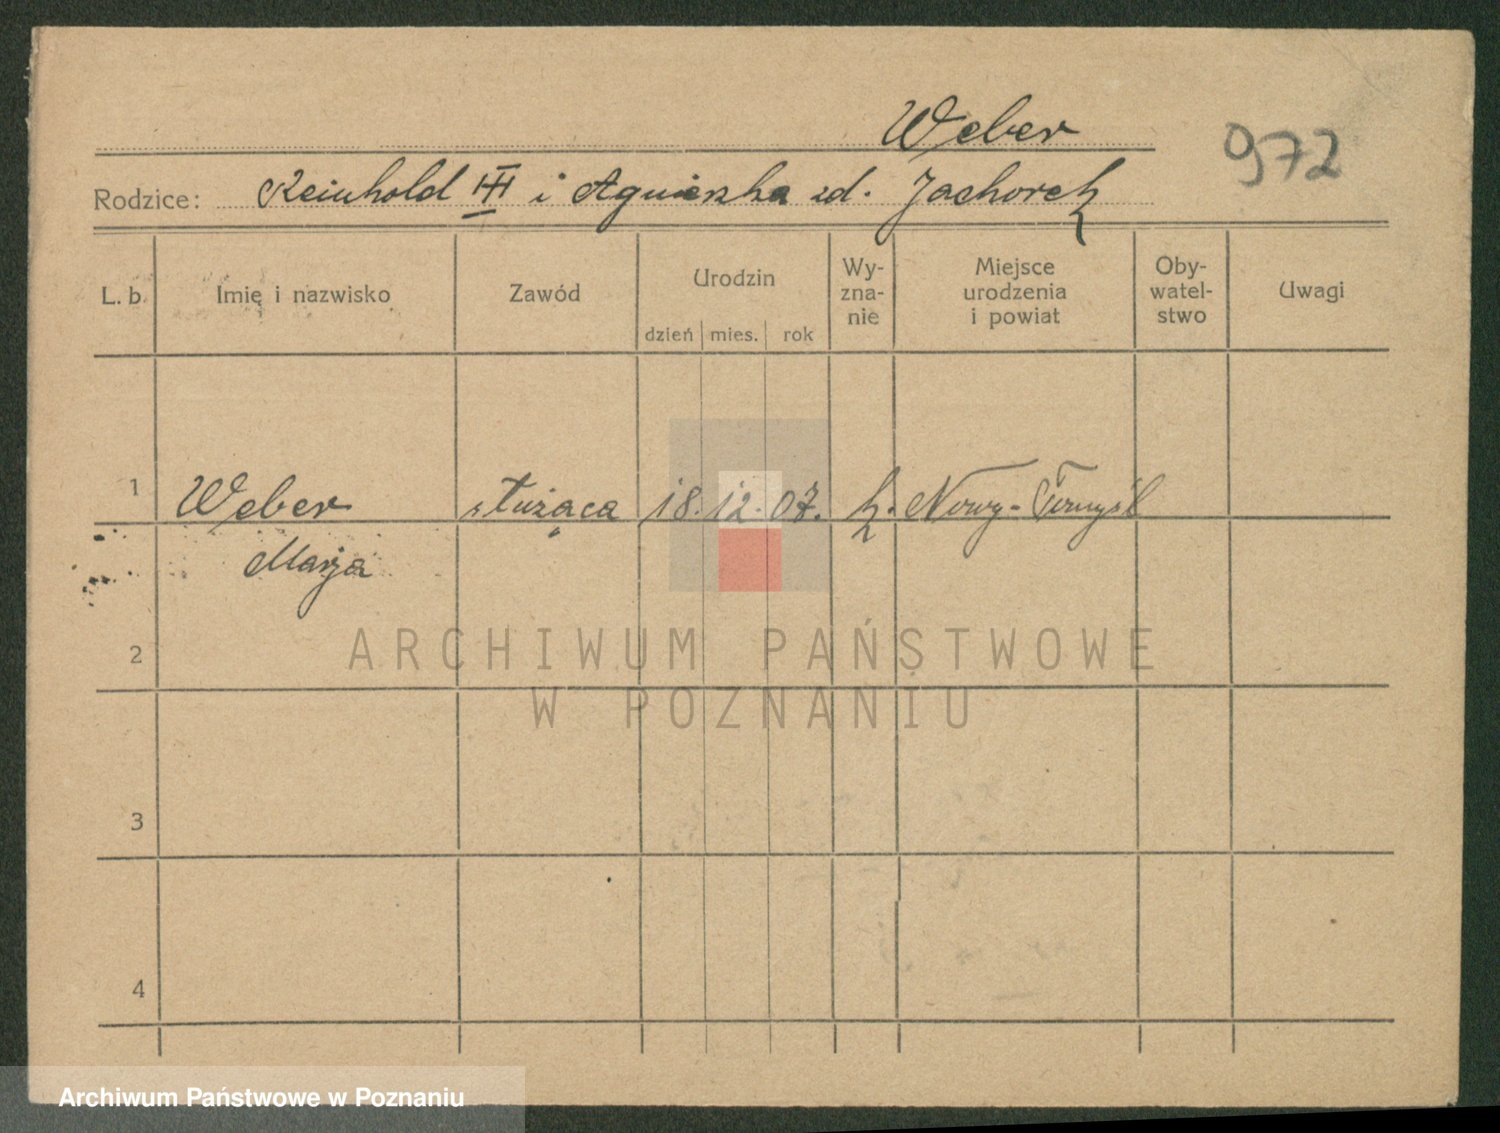 Weber
972
Rodzice: Reinhold III i Agnieszka zd. Jachorek
L. b. Imię i nazwisko Zawód Urodzin Wy-zna-nie Miejsce urodzenia i powiat Oby-watel-stwo Uwagi
dzień mies. rok
1 Weber służąca 18. 12. 07. k. Nowy-Tomyśl
Marja
2
3
4
ARCHIWUM PAŃSTWOWE
W POZNANIU
Archiwum Państwowe w Poznaniu